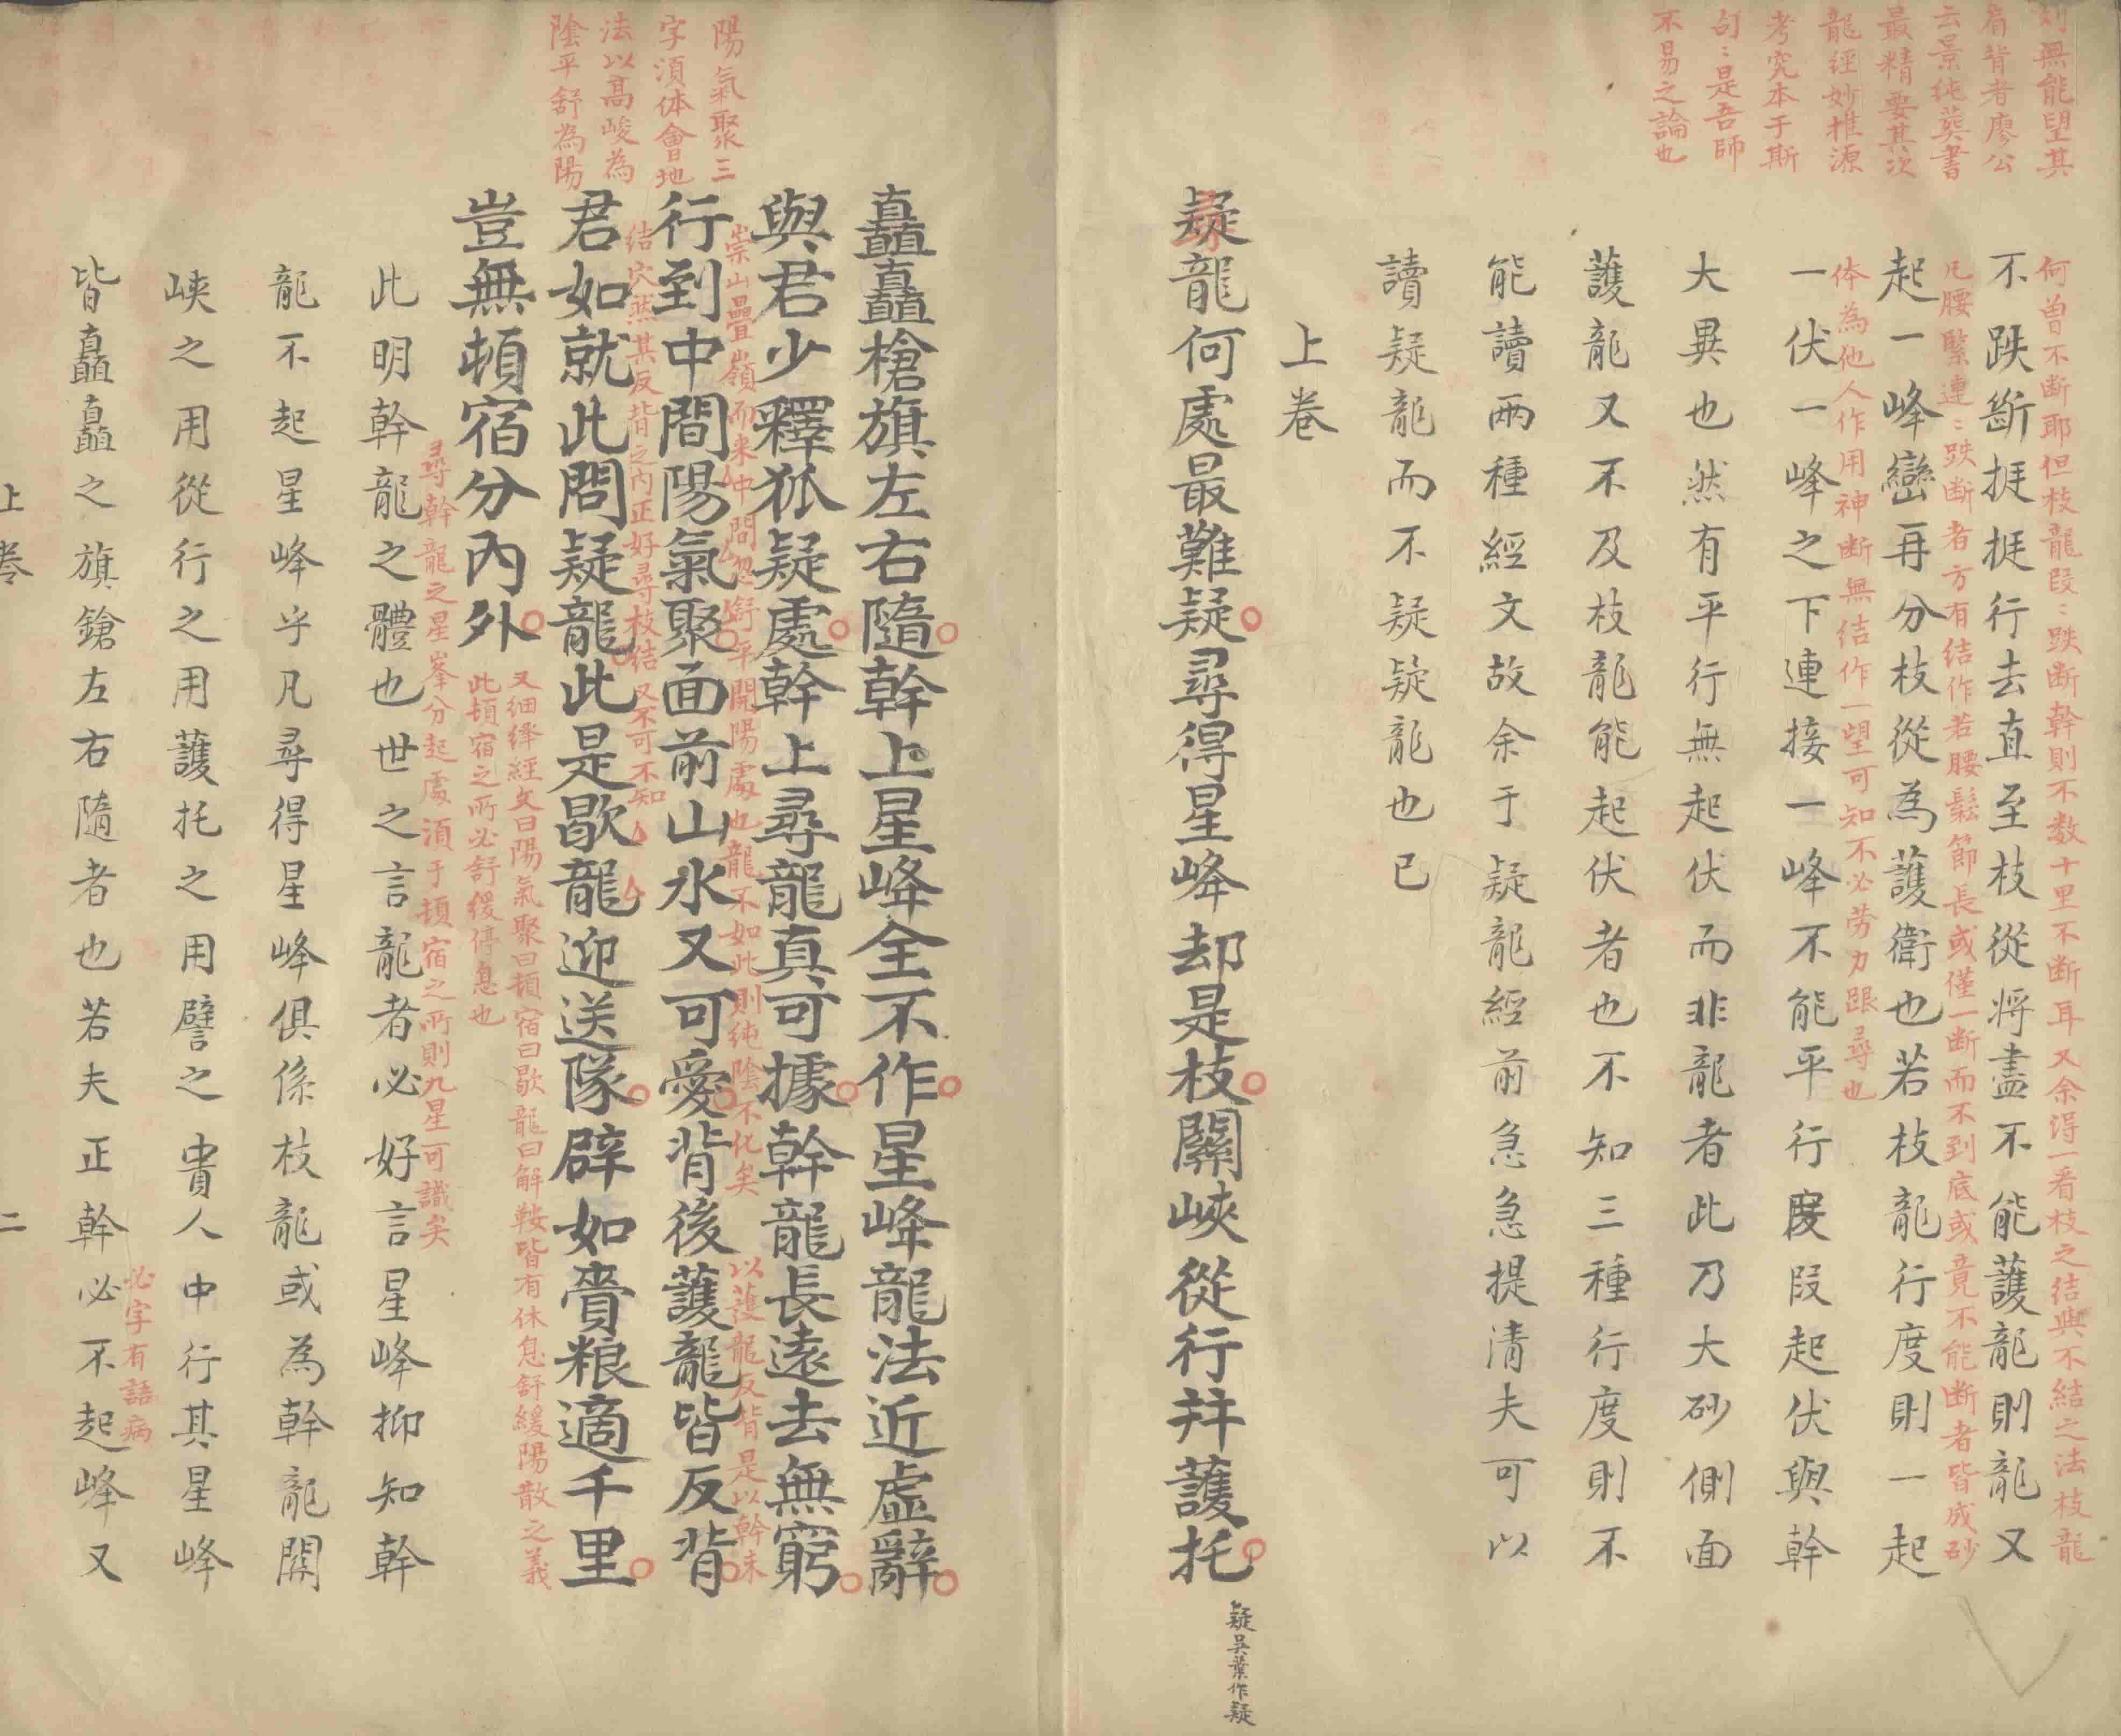 則無能望其
肩背者廖公
云景純葬書
最精要其次
龍經妙推源
考究本于斯
句〻是吾師
不易之論也
何曾不斷耶但枝龍段〻跌斷幹則不数十里不断耳又余得一看枝之結與不結之法枝龍
不跌斷挺挺行去直至枝從將盡不能護龍則龍又
凡腰緊連〻跌断者方有結作若腰鬆節長或僅一断而不到底或竟不能断者皆成砂
起一峰巒再分枝從為護衛也若枝龍行度則一起
体為他人作用神断無結作一望可知不必劳力跟尋也
一伏一峰之下連接一峰不能平行度段起伏與幹
大異也然有平行無起伏而非龍者此乃大砂側面
護龍又不及枝龍能起伏者也不知三種行度則不
能讀兩種經文故余于疑龍經前急急提清夫可以
讀疑龍而不疑疑龍也已
上卷
疑龍何處最難疑尋得星峰却是枝關峽從行并護托
疑吳葉作疑
矗矗槍旗左右隨幹上星峰全不作星峰龍法近虛辭
與君少釋狐疑處幹上尋龍真可據幹龍長遠去無窮
崇山疊嶺而来中間忽舒平開陽處也龍不如此則純陰不化矣
以護龍反背是以幹未
行到中間陽氣聚面前山水又可愛背後護龍皆反背
結穴然其反背之内正好尋枝結又不可不知
君如就此問疑龍此是歇龍迎送隊辟如賫粮適千里
豈無頓宿分内外
又細繹經文曰陽氣聚曰頓宿曰歇龍曰解鞍皆有休息舒緩陽散之義
此頓宿之所必舒緩停息也
陽氣聚三
字須体會地
法以高峻為
陰平舒為陽
尋幹龍之星峯分起處須于頓宿之所則九星可識矣
此明幹龍之體也世之言龍者必好言星峰抑知幹
龍不起星峰乎凡尋得星峰俱係枝龍或為幹龍關
峽之用從行之用護托之用譬之貴人中行其星峰
必字有語病
皆矗矗之旗鎗左右隨者也若夫正幹必不起峰又
上卷
二